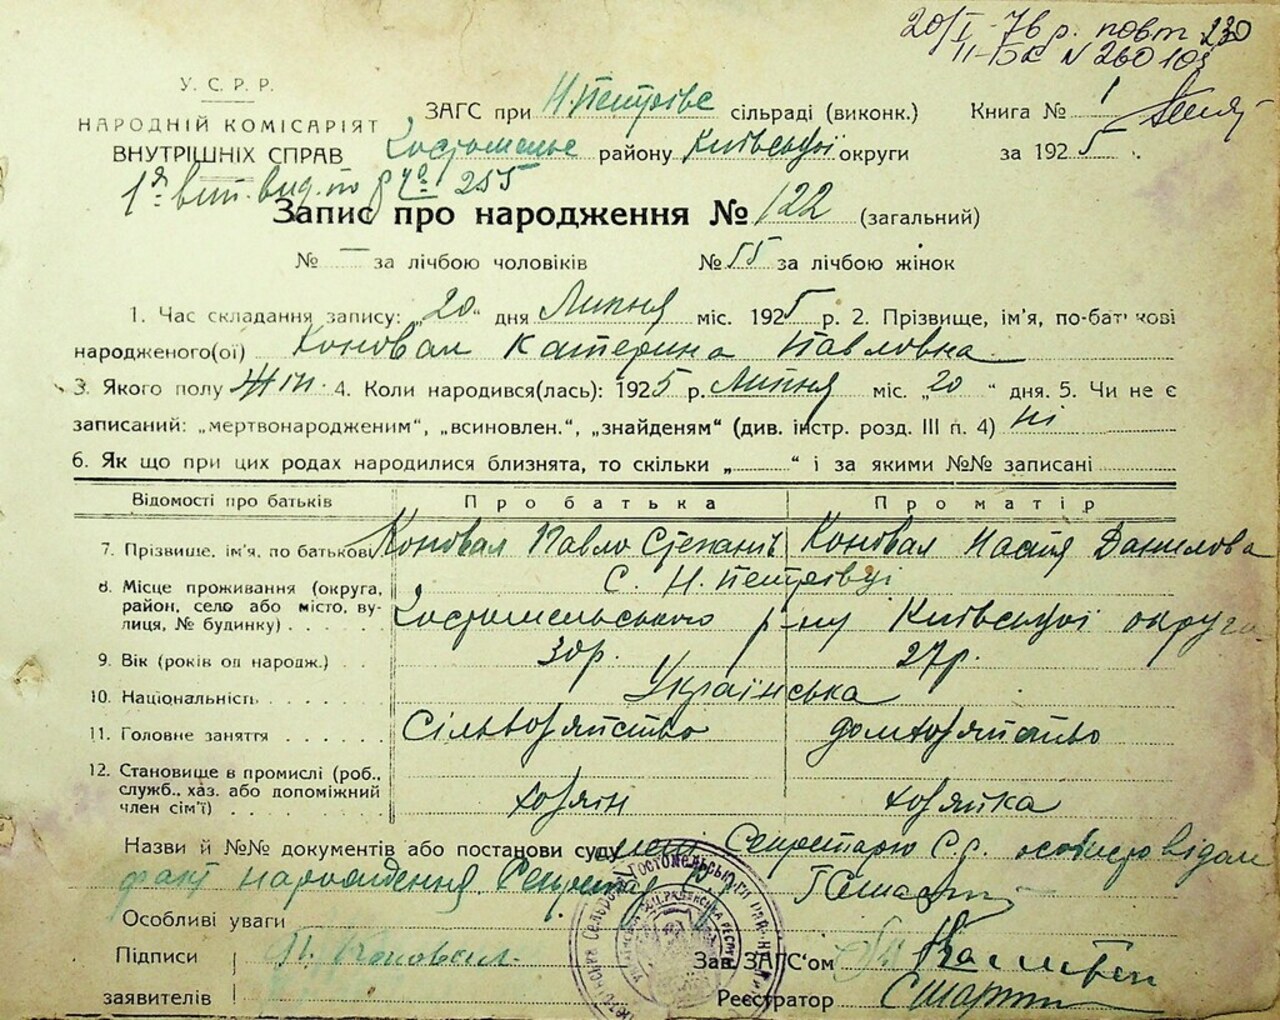 20/I-76 р. повт 230
II-БК N 260 103
У. С. Р. Р.
НАРОДНІЙ КОМІСАРІЯТ
ВНУТРІШНІХ СПРАВ
ЗАГС при Н. Петрівс сільраді (виконк.)
Книга № 1
району Київської округи
за 1925 .
255
Запис про народження № 122 (загальний)
№ — за лічбою чоловіків № 55 за лічбою жінок
1. Час складання запису: „20" дня Липня міс. 1925 р. 2. Прізвище, ім'я, по-батькові
народженого(ої) Коновал Катерина Павловна
3. Якого полу жін. 4. Коли народився(лась): 1925 р. Липня міс. „20 " дня. 5. Чи не є
записаний: „мертвонародженим", „всиновлен.", „знайденям" (див. інстр. розд. III п. 4) ні
6. Як що при цих родах народилися близнята, то скільки „ " і за якими №№ записані
Відомості про батьків Про батька Про матір
7. Прізвище, ім'я, по батькові Коновал Павло Степанів Коновал Настя Данилова
8. Місце проживання (округа, район, село або місто, вулиця, № будинку) с. Н. Петрівці
Гостомельського р-ну Київської округи
9. Вік (років од народж.) 30р. 27р.
10. Національність Українська
11. Головне заняття Сільхозяйство домхозяйство
12. Становище в промислі (роб., служб., хаз. або допоміжний член сім'ї) хозяін хозяйка
Назви й №№ документів або постанови суду мені Секретарю С.р. особисто відом
факт народження Секретар
Особливі уваги
Підписи П. Коновал. Зав. ЗАГС'ом
заявителів Реєстратор